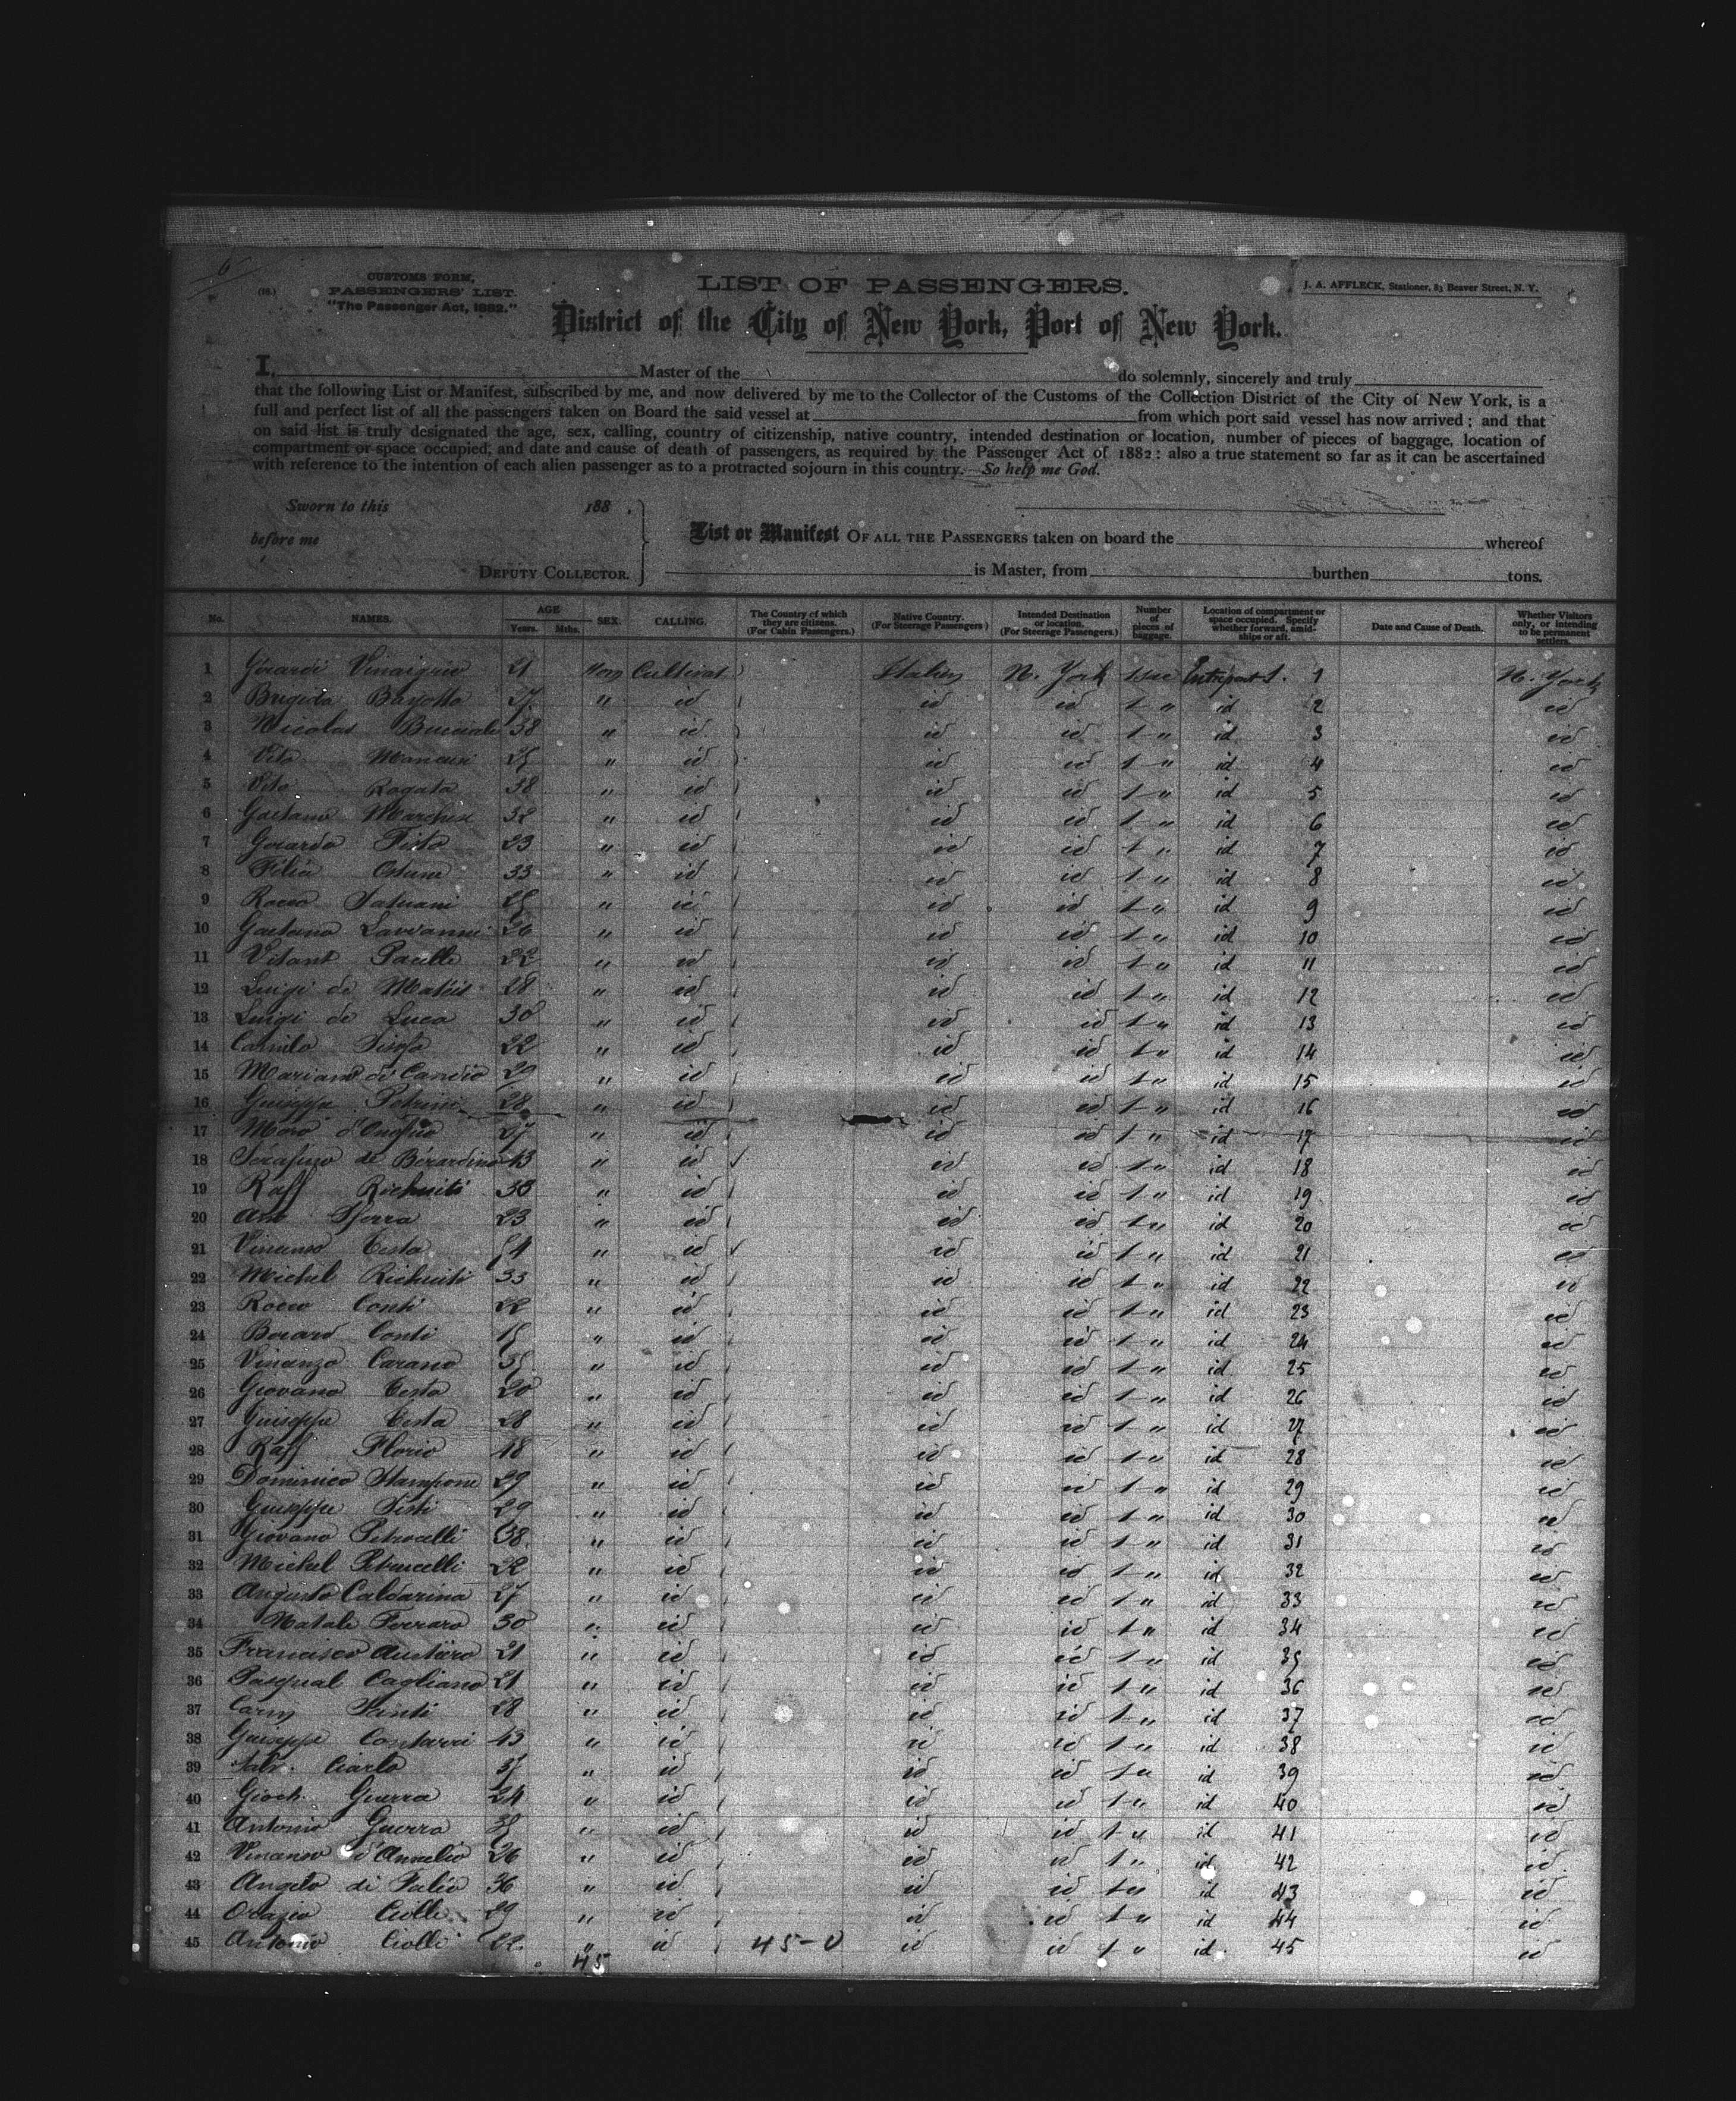 6
(18.)
CUSTOMS FORM,
PASSENGERS' LIST.
"The Passenger Act, 1882."
LIST OF PASSENGERS.
J. A. AFFLECK, Stationer, 83 Beaver Street, N. Y.
District of the City of New York, Port of New York.
I, Master of the do solemnly, sincerely and truly
that the following List or Manifest, subscribed by me, and now delivered by me to the Collector of the Customs of the Collection District of the City of New York, is a
full and perfect list of all the passengers taken on Board the said vessel at from which port said vessel has now arrived; and that
on said list is truly designated the age, sex, calling, country of citizenship, native country, intended destination or location, number of pieces of baggage, location of
compartment or space occupied, and date and cause of death of passengers, as required by the Passenger Act of 1882: also a true statement so far as it can be ascertained
with reference to the intention of each alien passenger as to a protracted sojourn in this country. So help me God.
Sworn to this 188 .
before me
DEPUTY COLLECTOR.
List or Manifest OF ALL THE PASSENGERS taken on board the whereof
is Master, from burthen tons.
No. NAMES. AGE Years. Mths. SEX. CALLING. The Country of which they are citizens. (For Cabin Passengers.) Native Country. (For Steerage Passengers) Intended Destination or location. (For Steerage Passengers.) Number of pieces of baggage. Location of compartment or space occupied. Specify whether forward, amidships or aft. Date and Cause of Death. Whether Visitors only, or intending to be permanent settlers.
1 Girardi 21 Cultivat Italien N. York 1 1 N. York
2 27 " id id id 1 " id 2 id
3 Nicolas 38 " id id id 1 " id 3 id
4 Vito Mancusi 25 " id id id 1 " id 4 id
5 Vito Rogata 38 " id id id 1 " id 5 id
6 Gaetano Marchese 32 " id id id 1 " id 6 id
7 Gerardo Pista 23 " id id id 1 " id 7 id
8 33 " id id id 1 " id 8 id
9 Rocco 25 " id id id 1 " id 9 id
10 Gaetano 26 " id id id 1 " id 10 id
11 Vitant Pacelli 22 " id id id 1 " id 11 id
12 Luigi di Mateis 28 " id id id 1 " id 12 id
13 Luigi de Luca 30 " id id id 1 " id 13 id
14 Camilo 22 " id id id 1 " id 14 id
15 Mariano di Candio 29 " id id id 1 " id 15 id
16 Guiseppe Petrini 28 " id id id 1 " id 16 id
17 Moro d'Onofrio 27 " id id id 1 " id 17 id
18 Serafino de Bérardino 43 " id id id 1 " id 18 id
19 Raff Richuiti 38 " id id id 1 " id 19 id
20 Ant 23 " id id id 1 " id 20 id
21 Vincenzo Testa 51 " id id id 1 " id 21 id
22 Michel Richuiti 33 " id id id 1 " id 22 id
23 Rocco Conti 22 " id id id 1 " id 23 id
24 Berard Conti 15 " id id id 1 " id 24 id
25 Vincenzo Carano 35 " id id id 1 " id 25 id
26 Giovano Testa 20 " id id id 1 " id 26 id
27 Guiseppe Testa 28 " id id id 1 " id 27 id
28 Raff Florio 18 " id id id 1 " id 28 id
29 Dominico Stampone 29 " id id id 1 " id 29 id
30 Guiseppe 29 " id id id 1 " id 30 id
31 Giovano Petrocelli 38 " id id id 1 " id 31 id
32 Michel Petrucelli 22 " id id id 1 " id 32 id
33 Augusto Caldarina 27 " id id id 1 " id 33 id
34 Natale Ferraro 30 " id id id 1 " id 34 id
35 Francisco 21 " id id id 1 " id 35 id
36 Pasqual Cagliano 21 " id id id 1 " id 36 id
37 Carm 28 " id id id 1 " id 37 id
38 Guiseppe 43 " id id id 1 " id 38 id
39 Salv. Ciarlo " id id id 1 " id 39 id
40 Gioch. Guerra 24 " id id id 1 " id 40 id
41 Antonio Guerra " id id id 1 " id 41 id
42 Vincenzo d'Aurelio 26 " id id id 1 " id 42 id
43 Angelo di Julio 36 " id id id 1 " id 43 id
44 Orazio Ciolli 29 " id id id 1 " id 44 id
45 Antonio Ciolli 22 " id 45-0 id id 1 " id 45 id
45